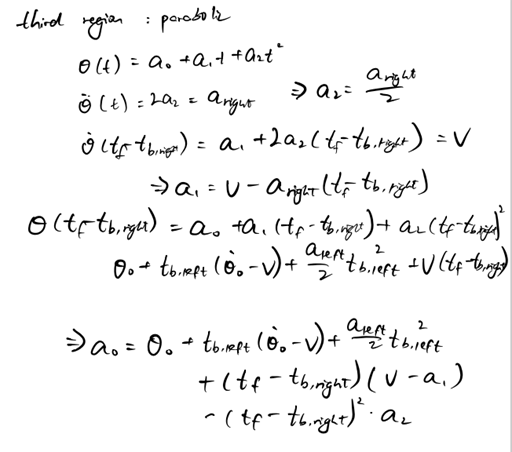 third region : parabola
θ(t) = a₀ + a₁t + a₂t²
θ̈(t) = 2a₂ = a_right ⇒ a₂ = a_right/2
θ̇(t_f - t_b,right) = a₁ + 2a₂(t_f - t_b,right) = V
⇒ a₁ = V - a_right(t_f - t_b,right)
θ(t_f - t_b,right) = a₀ + a₁(t_f - t_b,right) + a₂(t_f - t_b,right)²
θ₀ + t_b,left(θ̇₀ - V) + a_left/2 t_b,left² + V(t_f - t_b,right)
⇒ a₀ = θ₀ + t_b,left(θ̇₀ - V) + a_left/2 t_b,left²
+ (t_f - t_b,right)(V - a₁)
- (t_f - t_b,right)² · a₂